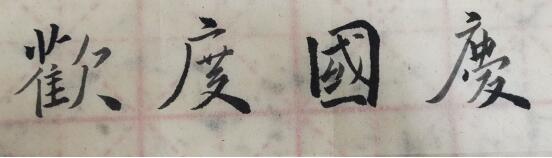 歡度國慶